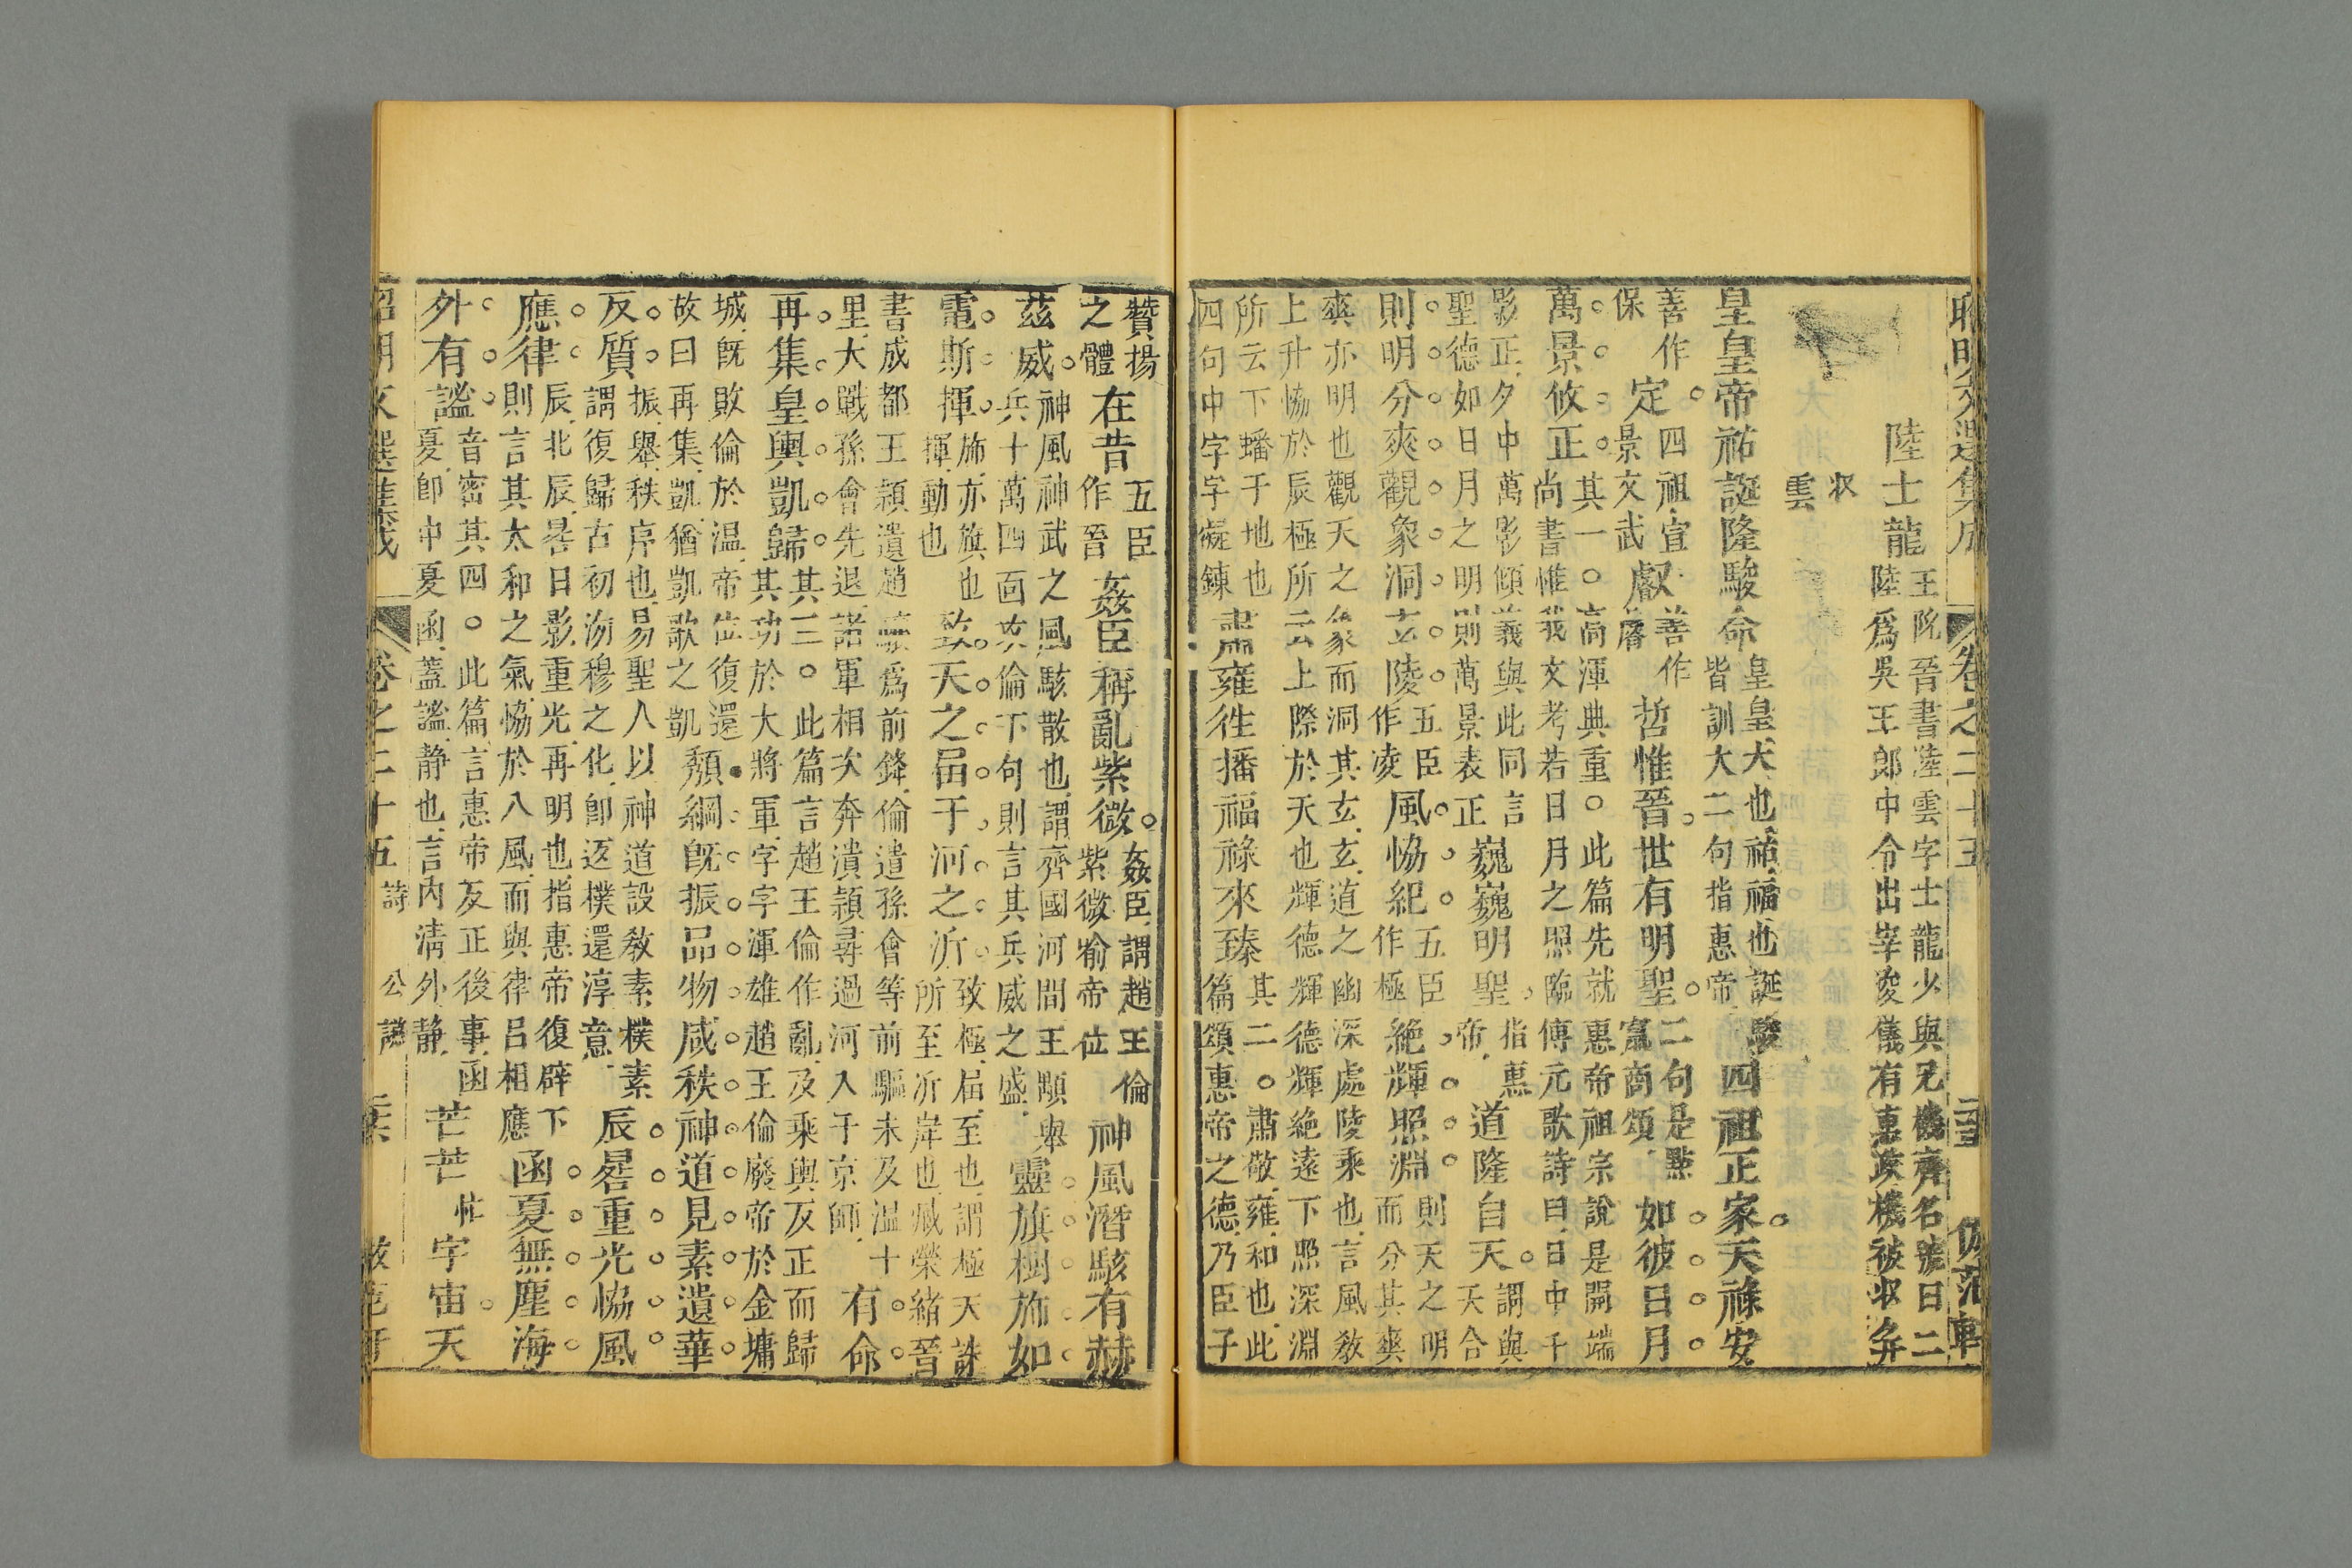 昭明文選集成　卷之二十五　倣范軒
陸士龍
王隱晉書陸雲字士龍少與兄機齊名號曰二
陸爲吳王郎中令出宰浚儀有惠政機被收并
收
雲
皇皇帝祐誕隆駿命
皇皇大也祐福也誕駿
皆訓大二句指惠帝
四祖正家天祿安
善作
保
定
四祖宣
景文武
叡
善作
睿
哲惟晉世有明聖
二句是點
竄商頌
如彼日月
萬景攸正
其一。高渾典重。此篇先就惠帝祖宗說是開端
尚書惟我文考若日月之照臨傅元歌詩曰日中千
影正夕中萬影傾義與此同言
聖德如日月之明則萬景表正
巍巍明聖
指惠
帝
道隆自天
謂與
天合
則明分爽觀象洞玄陵
五臣
作凌
風恊紀
五臣
作極
絶輝照淵
則天之明
而分其爽
爽亦明也觀天之象而洞其玄玄道之幽深處陵乘也言風教
上升恊於辰極所云上際於天也輝德輝德輝絶遠下照深淵
所云下蟠于地也
四句中字字凝鍊
肅雍徃播福祿來臻
其二。肅敬雍和也此
篇頌惠帝之德乃臣子
贊揚
之體
在昔
五臣
作晉
姦臣稱亂紫微
姦臣謂趙王倫
紫微喻帝位
神風潛駭有赫
茲威
神風神武之風駭散也謂齊國河間王顒舉
兵十萬四面攻倫下句則言其兵威之盛
靈旗樹旆如
電斯揮
旆亦旗也
揮動也
致天之屆于河之沂
致極屆至也謂極天誅
所至沂岸也臧榮緒晉
書成都王穎遣趙驤爲前鋒倫遣孫會等前驅未及温十
里大戰孫會先退諸軍相次奔潰穎尋過河入于京師
有命
再集皇輿凱歸
其三。此篇言趙王倫作亂及乘輿反正而歸
其功於大將軍字字渾雄趙王倫廢帝於金墉
城旣敗倫於温帝位復還
故曰再集凱猶凱歌之凱
頽綱旣振品物咸秩神道見素遺華
反質
振舉秩序也易聖人以神道設教素樸素
謂復歸古初沕穆之化卽返樸還淳意
辰晷重光恊風
應律
辰北辰晷日影重光再明也指惠帝復辟下
則言其太和之氣恊於八風而與律呂相應
函夏無塵海
外有謐
音密其四。此篇言惠帝反正後事函
夏卽中夏函蓋謐靜也言內清外靜
芒芒
忙
宇宙天
昭明文選集成　卷之二十五　詩　公讌　倣范軒